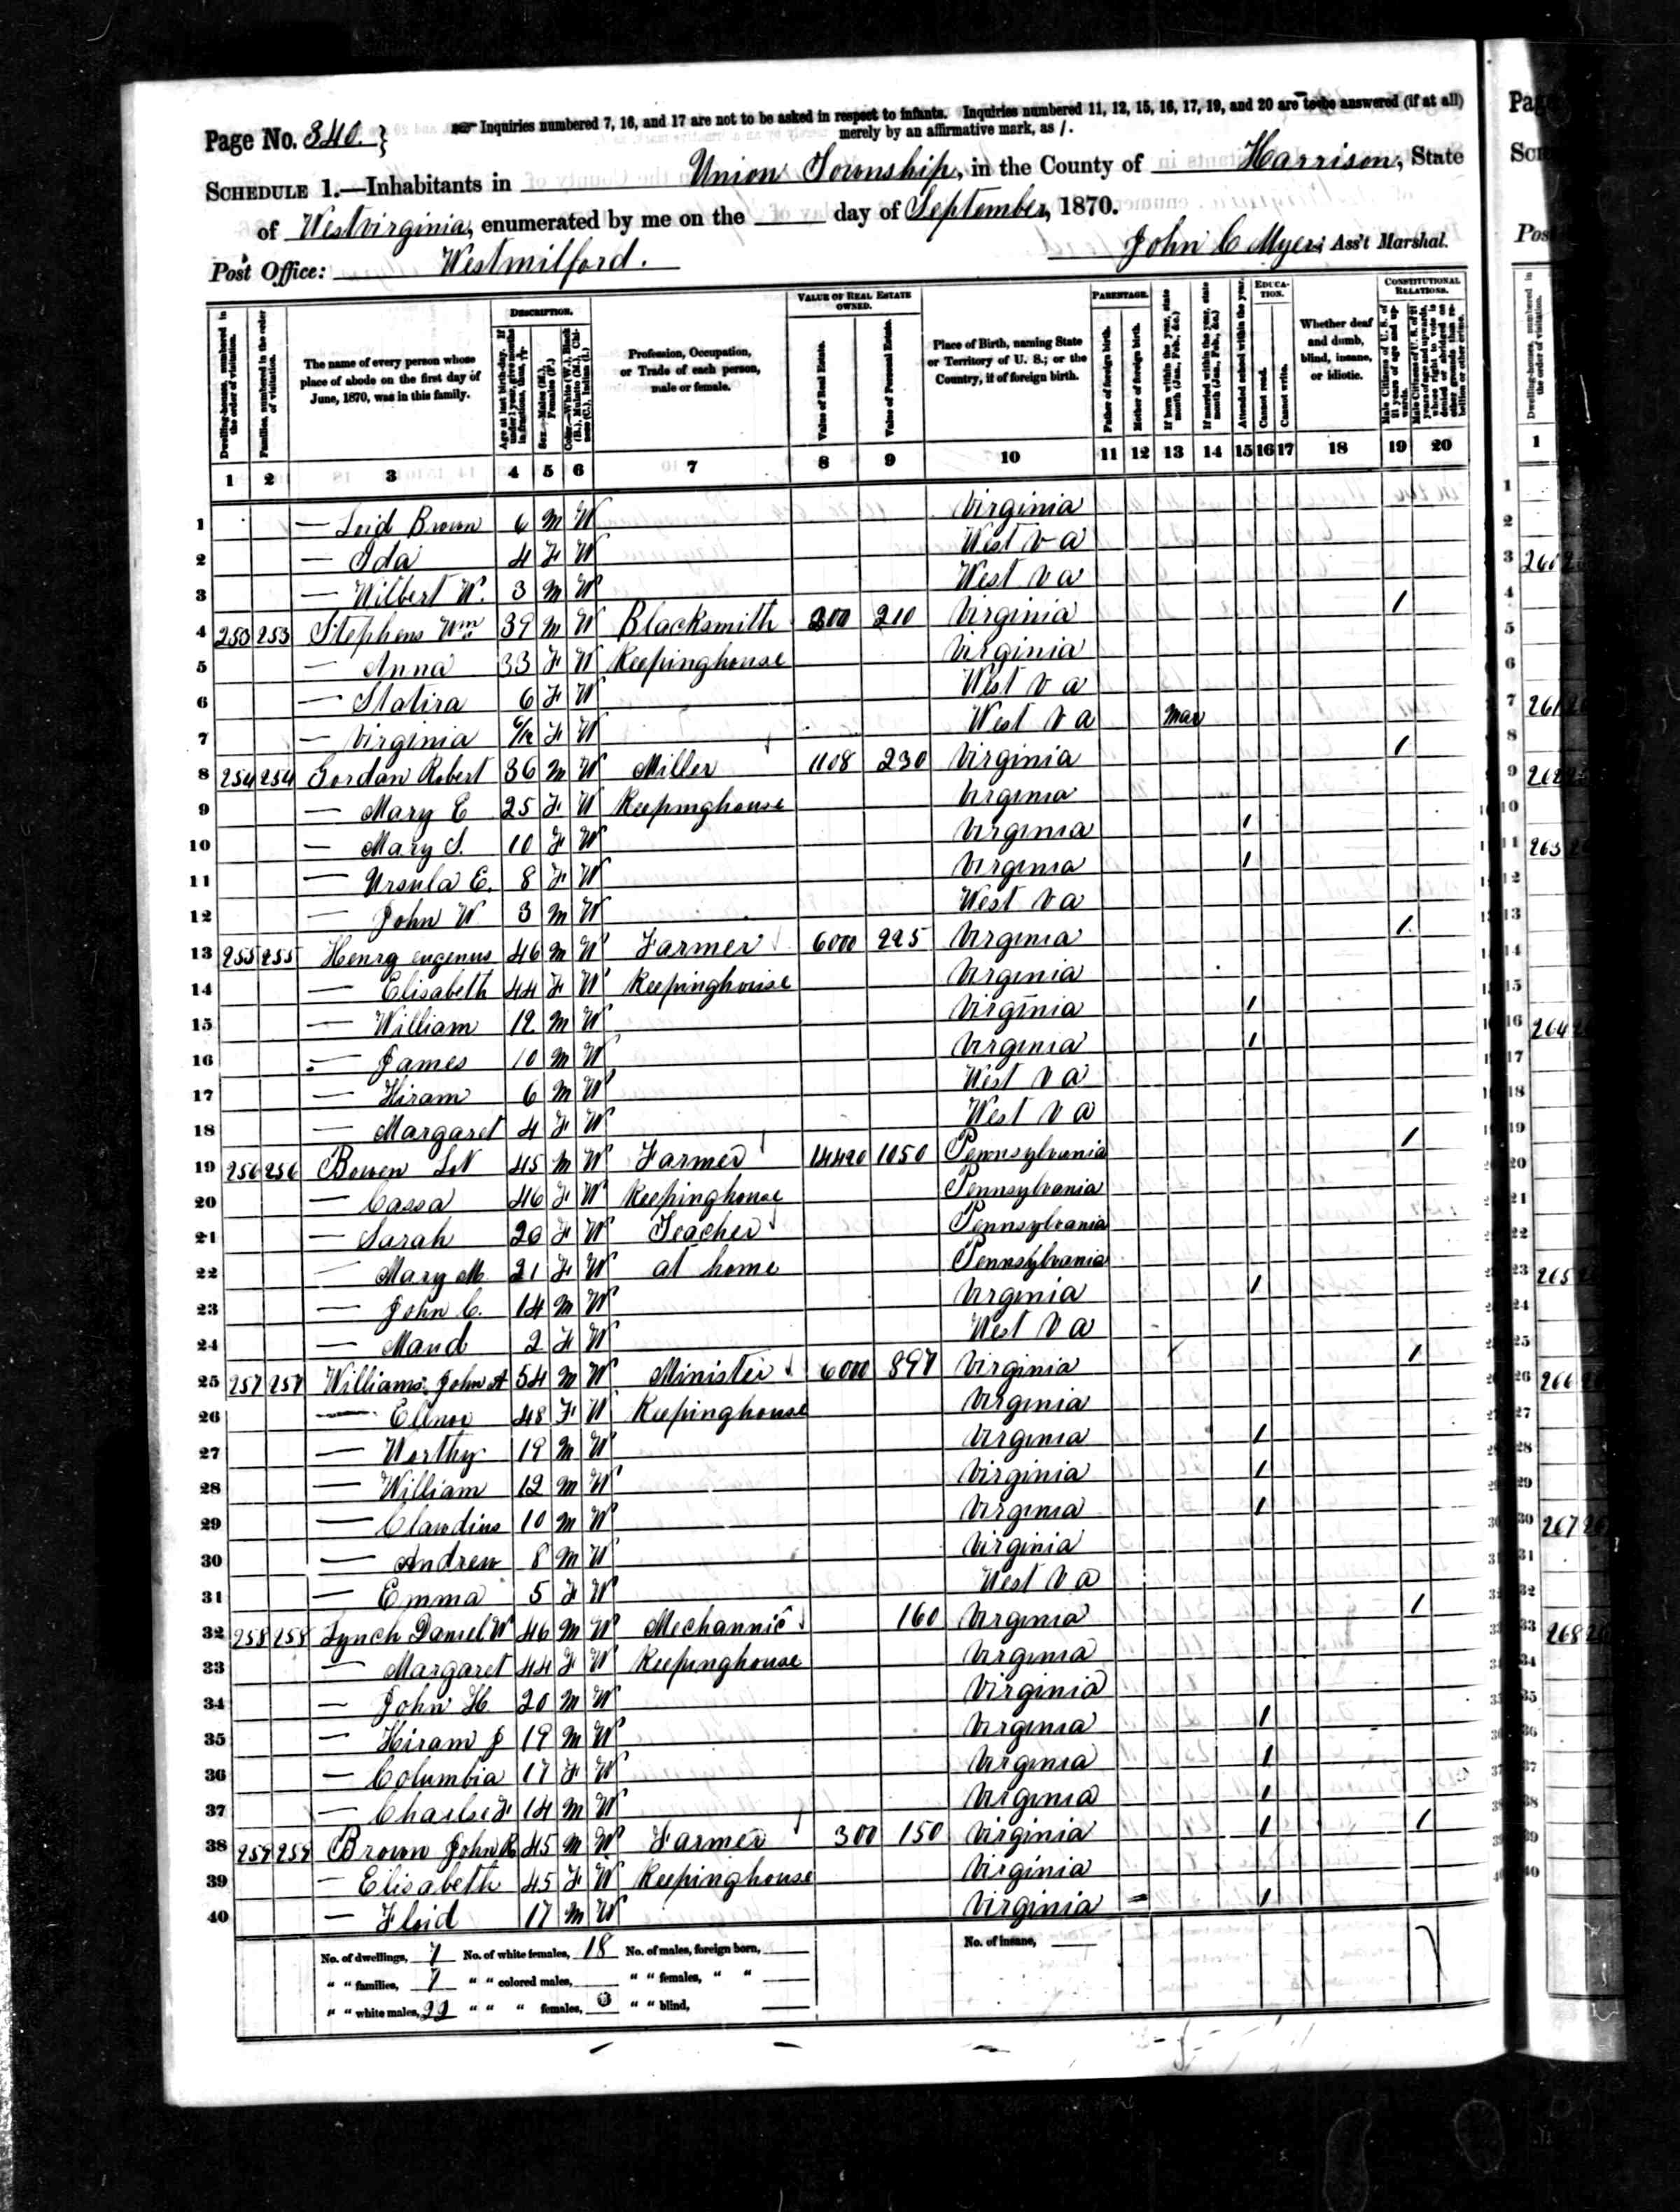 Page No. 340. } Inquiries numbered 7, 16, and 17 are not to be asked in respect to infants. Inquiries numbered 11, 12, 15, 16, 17, 19, and 20 are to be answered (if at all)
merely by an affirmative mark, as /.
SCHEDULE 1.—Inhabitants in Union Township, in the County of Harrison, State
of Westvirginia, enumerated by me on the day of September, 1870.
Post Office: Westmilford.
John C Myers Ass't Marshal.
Dwelling-houses, numbered in the order of visitation.
Families, numbered in the order of visitation.
The name of every person whose place of abode on the first day of June, 1870, was in this family.
DESCRIPTION.
Age at last birth-day. If under 1 year, give months in fractions, thus, 3/12
Sex.—Males (M.), Females (F.)
Color.—White (W.), Black (B.), Mulatto (M.), Chinese (C.), Indian (I.)
Profession, Occupation, or Trade of each person, male or female.
VALUE OF REAL ESTATE OWNED.
Value of Real Estate.
Value of Personal Estate.
Place of Birth, naming State or Territory of U. S.; or the Country, if of foreign birth.
PARENTAGE.
Father of foreign birth.
Mother of foreign birth.
If born within the year, state month (Jan., Feb., &c.)
If married within the year, state month (Jan., Feb., &c.)
EDUCATION.
Attended school within the year.
Cannot read.
Cannot write.
Whether deaf and dumb, blind, insane, or idiotic.
CONSTITUTIONAL RELATIONS.
Male Citizens of U. S. of 21 years of age and upwards.
Male Citizens of U. S. of 21 years of age and upwards, whose right to vote is denied or abridged on other grounds than rebellion or other crime.
1 2 3 4 5 6 7 8 9 10 11 12 13 14 15 16 17 18 19 20
1 — Loid Brown 6 M W Virginia
2 — Ida 4 F W West Va
3 — Wilbert W. 3 M W West Va
4 253 253 Stephens Wm 39 M W Blacksmith 200 210 Virginia 1
5 — Anna 33 F W Keepinghouse Virginia
6 — Statira 6 F W West Va
7 — Virginia F W West Va Mar
8 254 254 Jordan Robert 36 M W Miller 1108 230 Virginia 1
9 — Mary E 25 F W Keepinghouse Virginia
10 — Mary S. 10 F W Virginia 1
11 — Ursula E. 8 F W Virginia 1
12 — John W 3 M W West Va
13 255 255 Henry eugenus 46 M W Farmer 6000 225 Virginia 1
14 — Elisabeth 44 F W Keepinghouse Virginia
15 — William 12 M W Virginia 1
16 — James 10 M W Virginia 1
17 — Hiram 6 M W West Va
18 — Margaret 4 F W West Va
19 256 256 Bowen 45 M W Farmer 14420 1050 Pennsylvania 1
20 — Cassa 46 F W Keepinghouse Pennsylvania
21 — Sarah 20 F W Teacher Pennsylvania
22 — Mary M 21 F W at home Pennsylvania
23 — John C. 14 M W Virginia 1
24 — Maud 2 F W West Va
25 257 257 Williams John A 54 M W Minister 6000 897 Virginia 1
26 — Elinor 48 F W Keepinghouse Virginia
27 — Worthy 19 M W Virginia 1
28 — William 12 M W Virginia 1
29 — Clawdius 10 M W Virginia 1
30 — Andrew 8 M W Virginia
31 — Emma 5 F W West Va
32 258 258 Lynch Daniel W 46 M W Mechannic 160 Virginia 1
33 — Margaret 44 F W Keepinghouse Virginia
34 — John H 20 M W Virginia
35 — Hiram J 19 M W Virginia 1
36 — Columbia 17 F W Virginia 1
37 — Charlse F 14 M W Virginia 1
38 259 259 Brown John R 45 M W Farmer 300 150 Virginia 1 1
39 — Elisabeth 45 F W Keepinghouse Virginia
40 — Floid 17 M W Virginia 1
No. of dwellings, 7 No. of white females, 18 No. of males, foreign born, No. of insane,
" " families, 7 " " colored males, " " females, " "
" " white males, 22 " " " females, 0 " " blind,